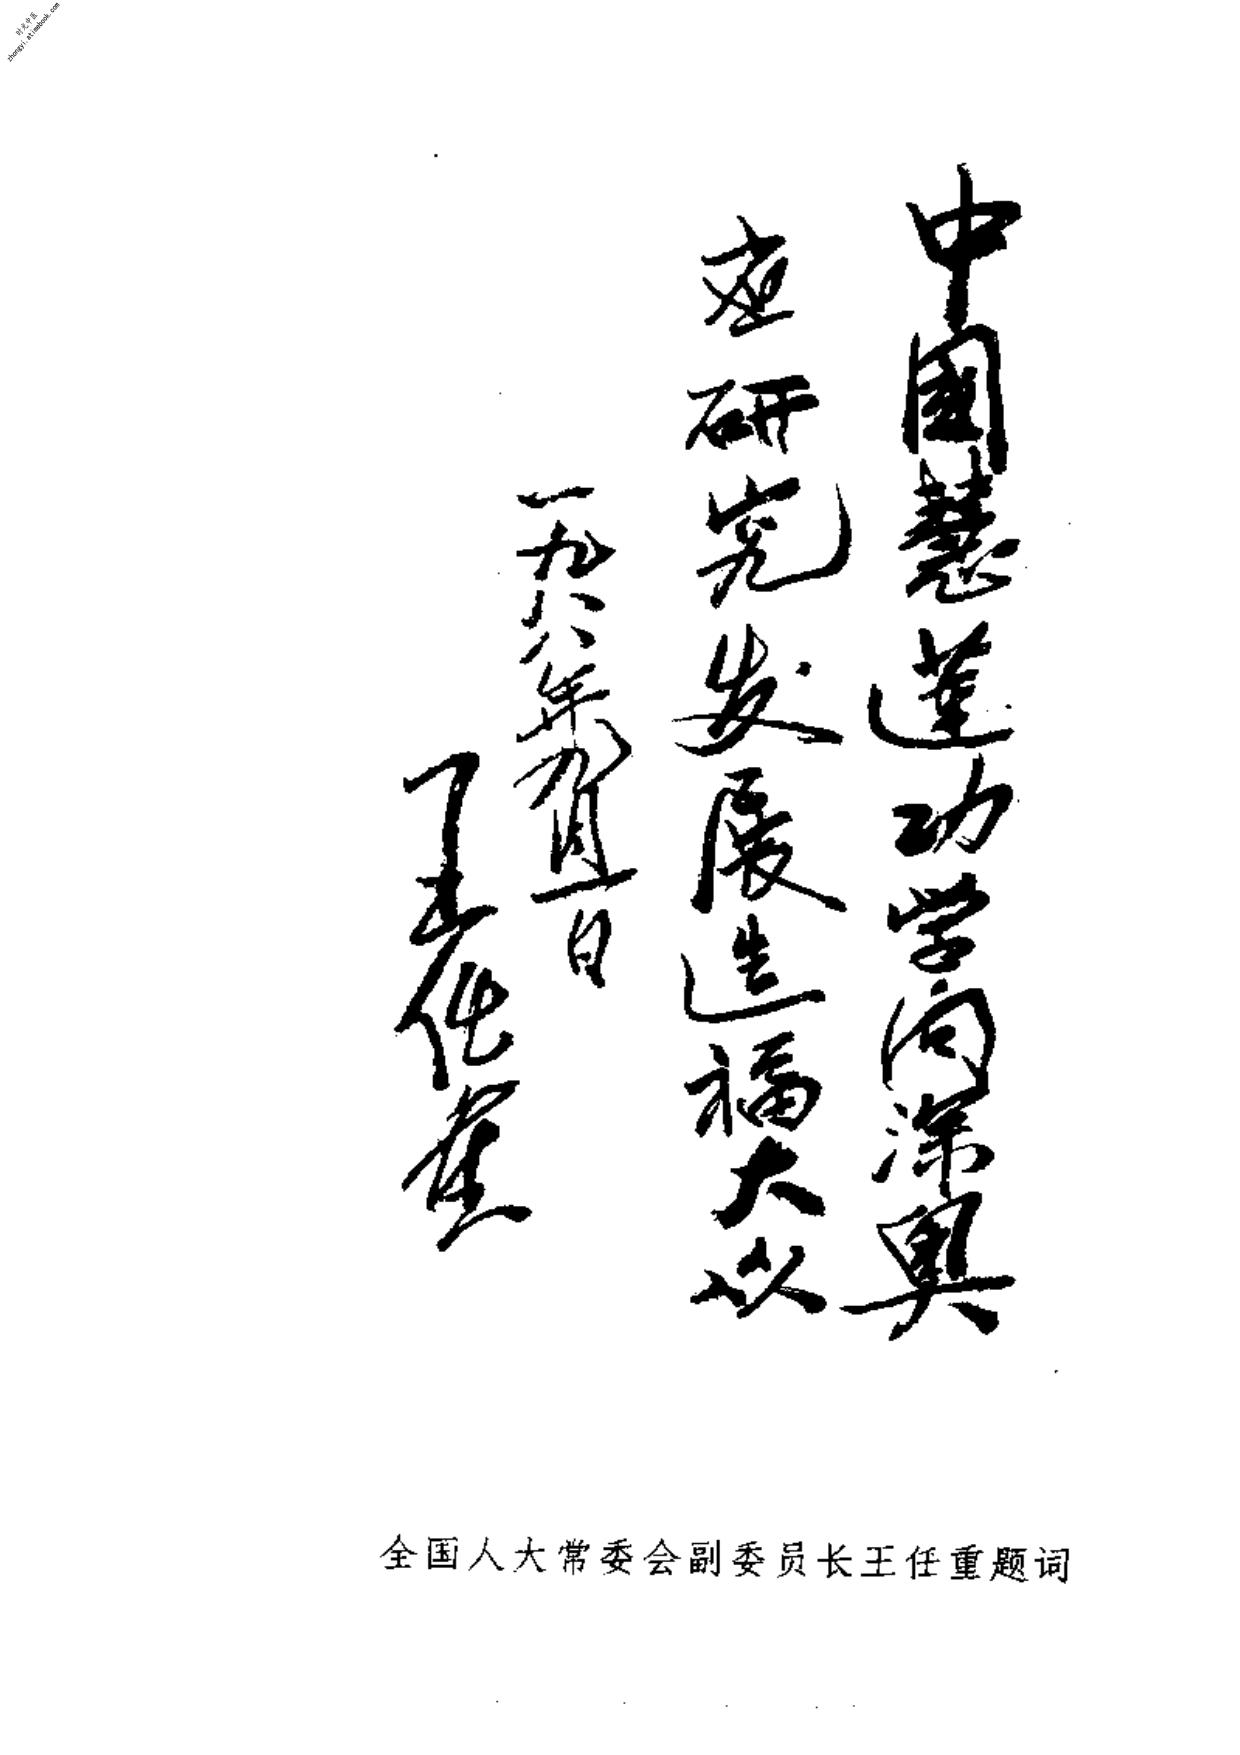 时光中医
zhongyi.atimebook.com
中國慧莲功学问深奥
应研究发展造福大众
一九八八年九月一日
王任重
全国人大常委会副委员长王任重题词